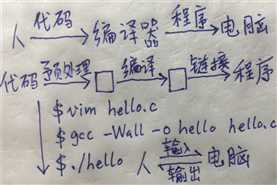 人 代码 编译器 程序 电脑
代码 预处理 编译 链接 程序
$ vim hello.c
$ gcc -Wall -o hello hello.c
$ ./hello 人 输入 输出 电脑